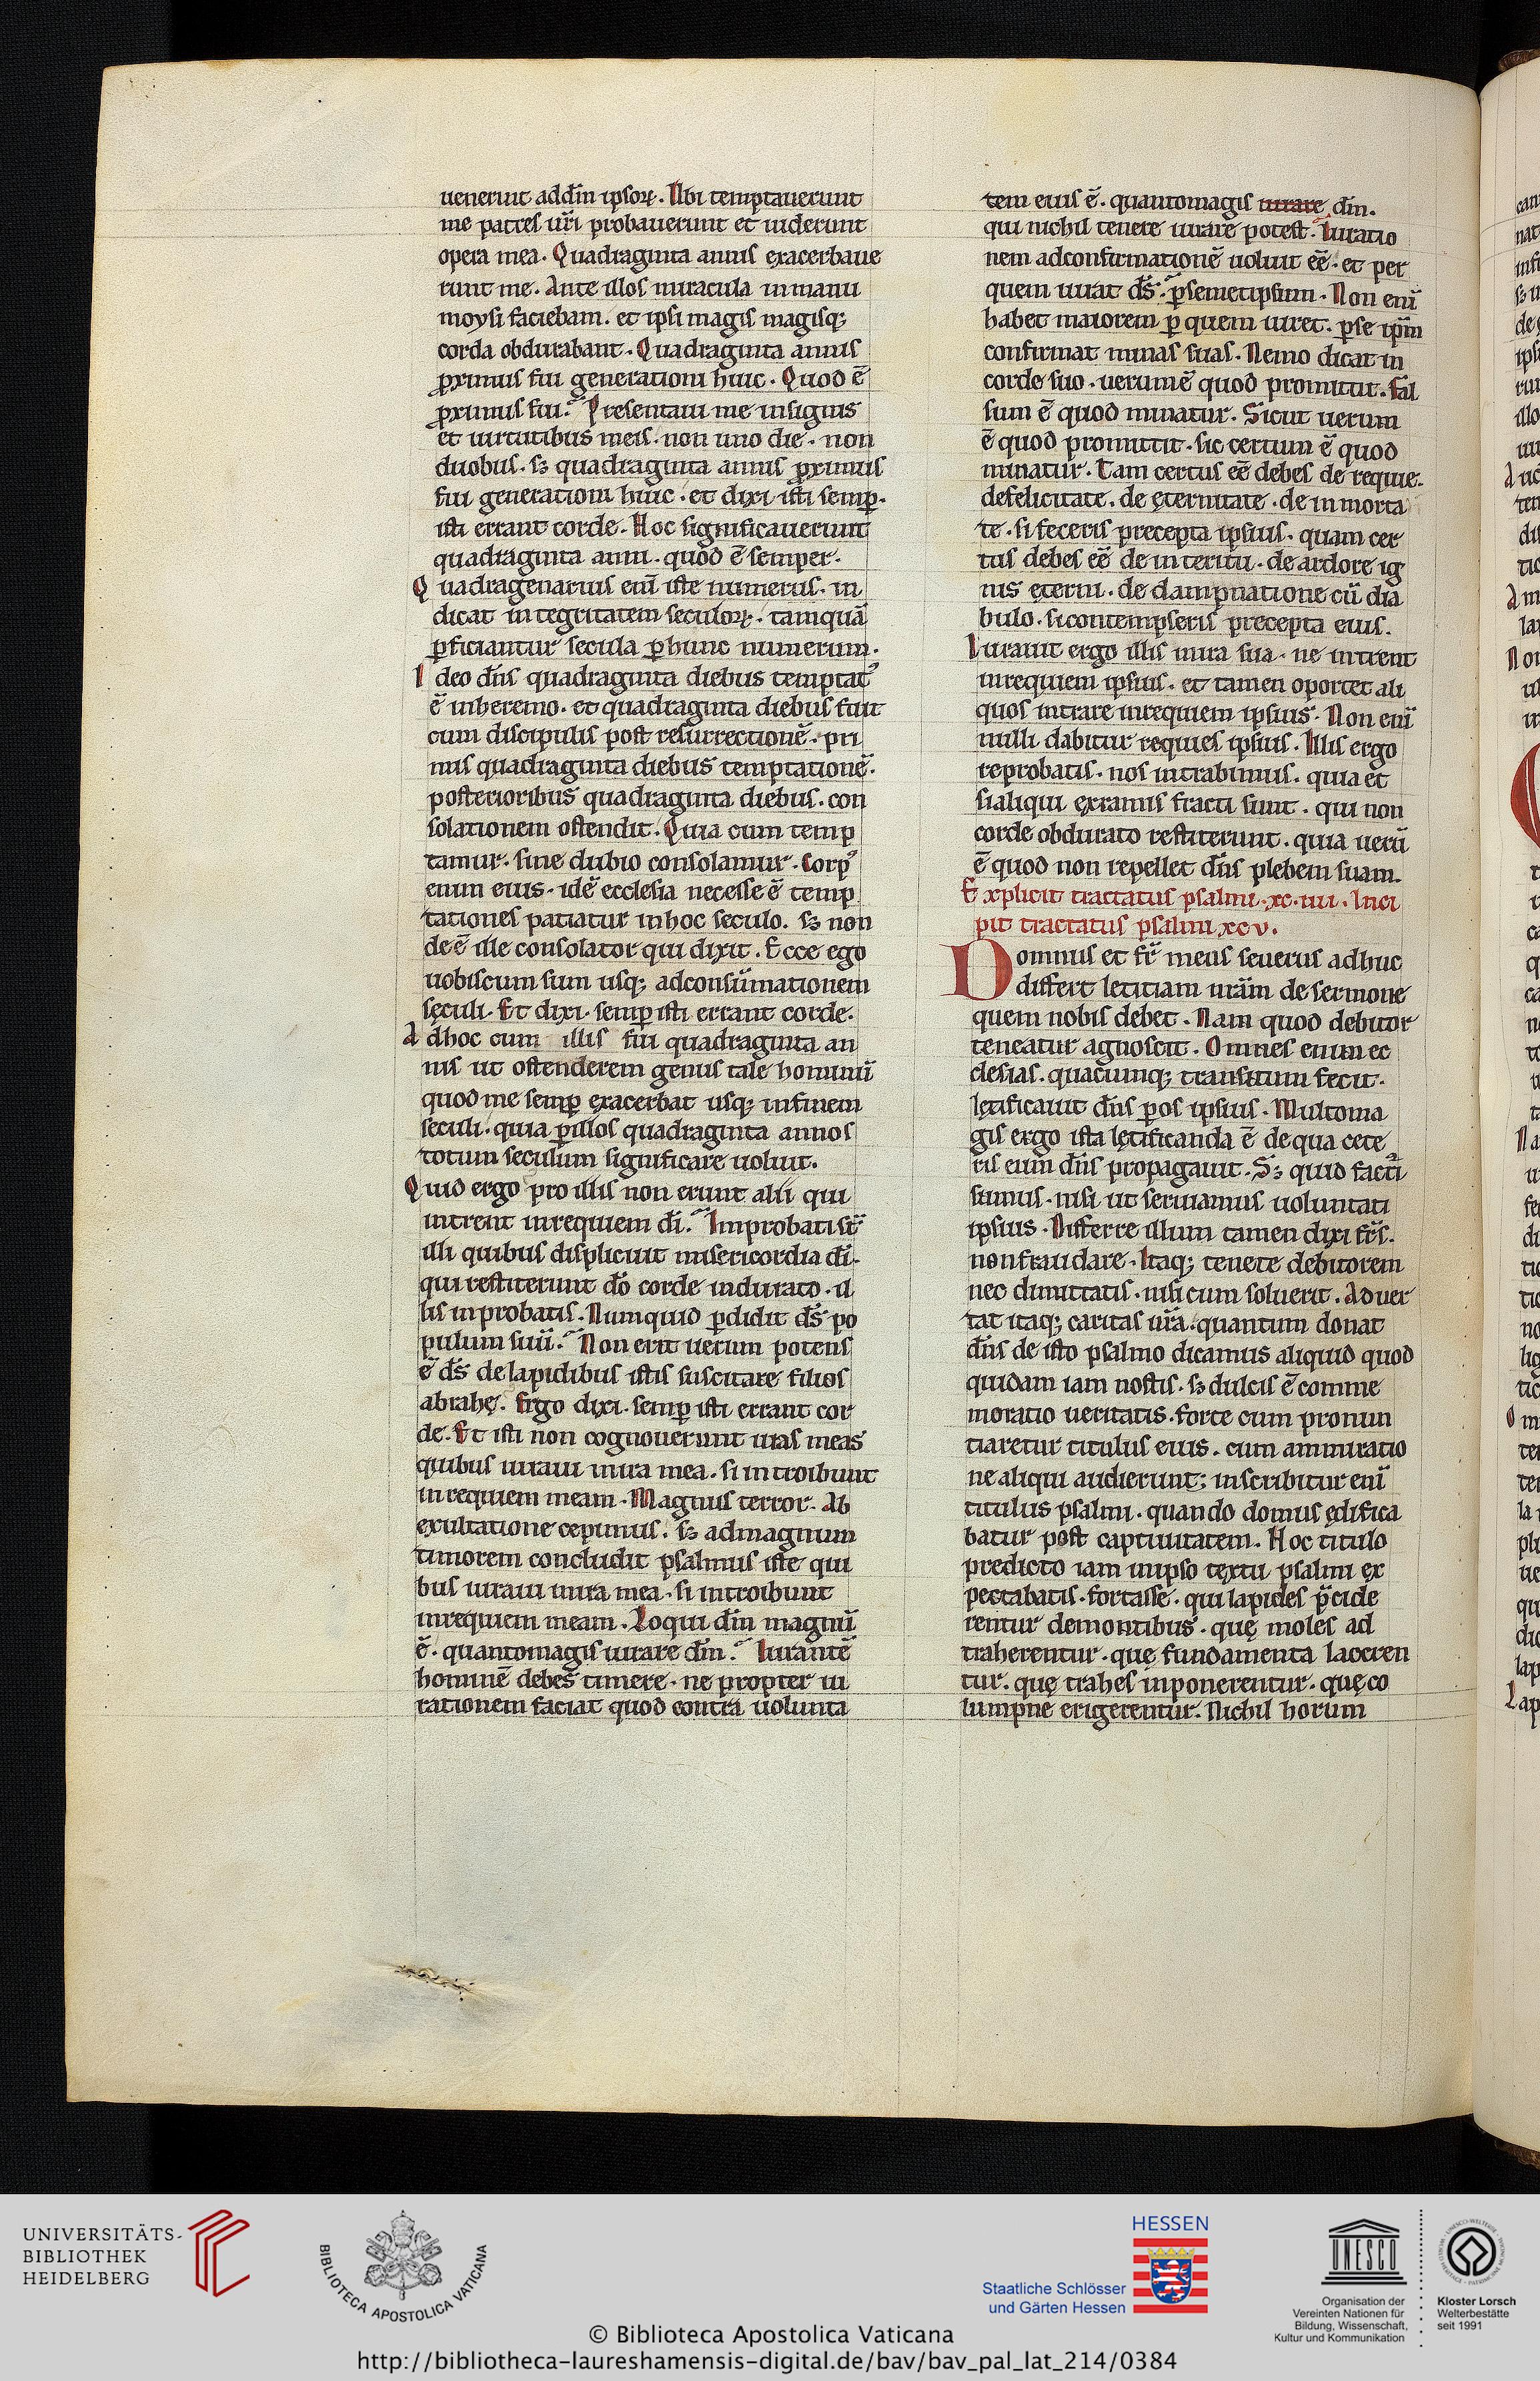 uenerunt addm̄ ipsoꝝ. Ubi temptauerunt
me patres ur̄i probauerunt et uiderunt
opera mea. Quadraginta annis exacerbaue
runt me. Ante illos miracula inmanu
moysi faciebam. et ipsi magis magisq;
corda obdurabant. Quadraginta annis
ꝓximus fui generationi huic. Quod ē
ꝓximus fui. Presentaui me insignis
et uirtutibus meis. non uno die. non
duobus. sꝫ quadraginta annis ꝓximus
fui generationi huic. et dixi isti semꝑ.
isti errant corde. Hoc significauerunt
quadraginta anni. quod ē semper.
Quadragenarius eni iste numerus. in
dicat integritatem seculoꝝ. tamquā
ꝑficiantur secula ꝑhunc numerum.
Ideo dn̄s quadraginta diebus temptatꝰ
ē inheremo. et quadraginta diebus fuit
cum discipulis post resurrectionē. pri
mis quadraginta diebus temptationē.
posterioribus quadraginta diebus. con
solationem ostendit. Quia cum temp
tamur. sine dubio consolamur. Corpꝰ
enim eius. idē ecclesia necesse ē temp
tationes patiatur inhoc seculo. sꝫ non
de ē ille consolator qui dixit. Ecce ego
uobiscum sum usq; adconsūmationem
sęculi. Et dixi. semꝑ isti errant corde.
Adhoc cum illis fui quadraginta an
nis ut ostenderem genus tale hominū
quod me semꝑ exacerbat usq; infinem
seculi. quia ꝑillos quadraginta annos
totum seculum significare uoluit.
Quid ergo pro illis non erunt alii qui
intrent inrequiem dī. Improbati st̄
illi quibus displicuit misericordia dī.
qui restiterunt dō corde indurato. il
lis inprobatis. Numquid ꝑdidit dś po
pulum suū. Non erit uerum potens
ē dś delapidibus istis suscitare filios
abrahę. Ergo dixi. semꝑ isti errant cor
de. Et isti non cognouerunt uias meas
quibus iuraui inira mea. si introibunt
inrequiem meam. Magnus terror. Ab
exultatione cepimus. sꝫ admagnum
timorem concludit psalmus iste qui
bus iuraui inira mea. si introibunt
inrequiem meam. Loqui dm̄ magnū
ē. quantomagis iurare dm̄. Iurantē
hominē debes timere. ne propter iu
rationem faciat quod contra uolunta
tem eius ē. quantomagis iurare dm̄.
qui nichil tenere iurare potest. Iuratio
nem adconfirmationē uoluit eē. et per
quem iurat dś. ꝑsemetipsum. Non enī
habet maiorem ꝑ quem iuret. ꝑse ipm̄
confirmat minas suas. Nemo dicat in
corde suo. uerumē quod promittit. Fal
sum ē quod minatur. Sicut uerum
ē quod promittit. sic certum ē quod
minatur. Tam certus eē debes de requie.
defelicitate. de ęternitate. de inmorta
te. si feceris precepta ipsius. quam cer
tus debes eē de interitu. de ardore ig
nis ęterni. de dampnatione cū dia
bulo. sicontempseris precepta eius.
Iurauit ergo illis inira sua. ne intrent
inrequiem ipsius. et tamen oportet ali
quos intrare inrequiem ipsius. Non enī
nulli dabitur requies ipsius. Illis ergo
reprobatis. nos intrabimus. quia et
sialiqui exramis fracti sunt. qui non
corde obdurato restiterunt. quia uerū
ē quod non repellet dn̄s plebem suam.
Explicit tractatus psalmi .xc.iiii. Inci
pit tractatus psalmi xcv.
Domnus et fr̄ meus seuerus adhuc
differt letitiam nrām de sermone
quem nobis debet. Nam quod debitor
teneatur agnoscit. Omnes enim ec
clesias. quacumq; transitum fecit.
lętificauit dn̄s ꝑos ipsius. Multoma
gis ergo ista lętificanda ē dequa cete
ris eum dn̄s propagauit. Sꝫ quid facti
sumus. nisi ut seruiamus uoluntati
ipsius. Differre illum tamen dixi fr̄s.
nonfraudare. Itaq; tenete debitorem
nec dimittatis. nisi cum soluerit. Aduer
tat itaq; caritas ur̄a. quantum donat
dn̄s de isto psalmo dicamus aliquid quod
quidam iam nostis. sꝫ dulcis ē comme
moratio ueritatis. forte cum pronun
tiaretur titulus eius. cum ammiratio
ne aliqui audierunt; inscribitur enī
titulus psalmi. quando domus ędifica
batur post captiuitatem. Hoc titulo
predicto iam inipso textu psalmi ex
pectabatis. fortasse. qui lapides p̄cide
rentur demontibus. quę moles ad
traherentur. quę fundamenta laceren
tur. quę trabes inponerentur. quę co
lumpne erigerentur. Nichil horum
UNIVERSITÄTS-
BIBLIOTHEK
HEIDELBERG
BIBLIOTECA APOSTOLICA VATICANA
HESSEN
Staatliche Schlösser
und Gärten Hessen
UNESCO
Organisation der
Vereinten Nationen für
Bildung, Wissenschaft,
Kultur und Kommunikation
Kloster Lorsch
Welterbestätte
seit 1991
© Biblioteca Apostolica Vaticana
http://bibliotheca-laureshamensis-digital.de/bav/bav_pal_lat_214/0384